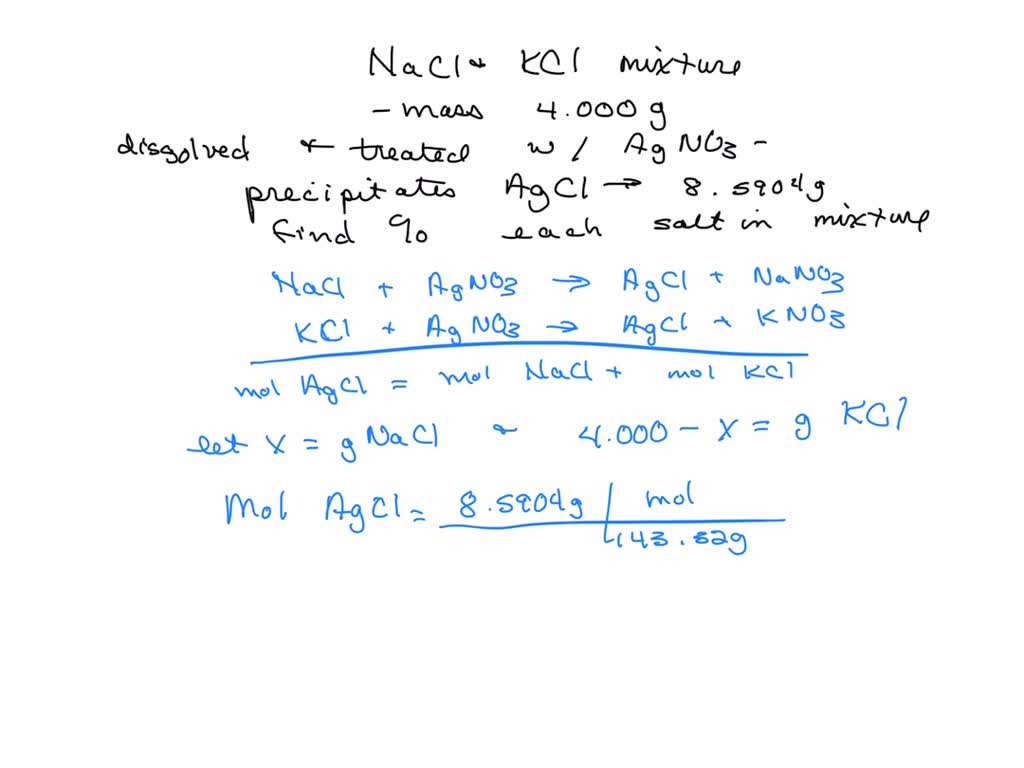 NaCl & KCl mixture
- mass 4.000 g
dissolved & treated w/ AgNO3 -
precipitates AgCl → 8.5904g
find % each salt in mixture
NaCl + AgNO3 → AgCl + NaNO3
KCl + AgNO3 → AgCl + KNO3
mol AgCl = mol NaCl + mol KCl
let x = g NaCl & 4.000 - x = g KCl
Mol AgCl = 8.5904g | mol
143.32g